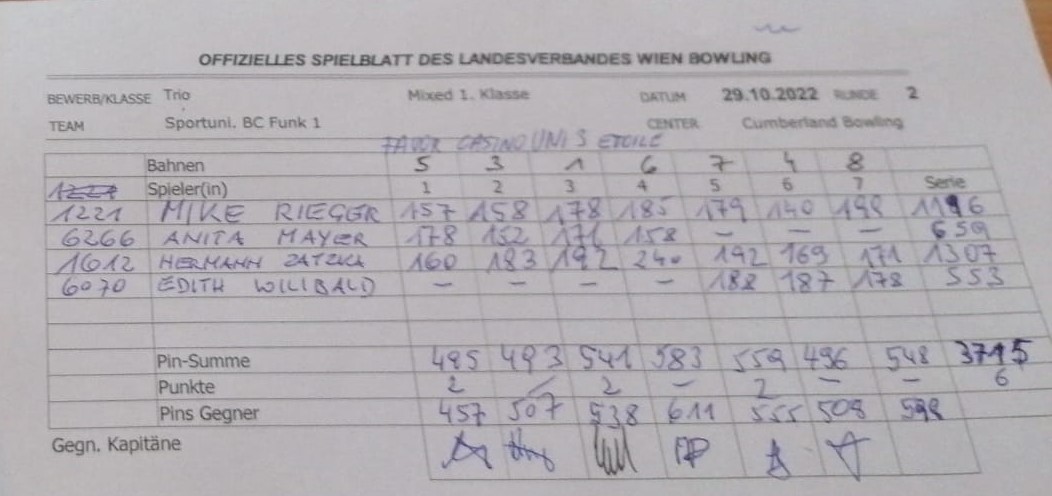 OFFIZIELLES SPIELBLATT DES LANDESVERBANDES WIEN BOWLING
BEWERB/KLASSE Trio Mixed 1. Klasse DATUM 29.10.2022 RUNDE 2
TEAM Sportuni. BC Funk 1 CENTER Cumberland Bowling
FAVOR CASINO UNI 3 ETOILE
Bahnen 5 3 1 6 7 4 8
Spieler(in) 1 2 3 4 5 6 7 Serie
1221 MIKE RIEGER 157 158 178 185 179 140 199 1196
6266 ANITA MAYER 178 152 171 158 – – – 659
1612 HERMANN ZATZKA 160 183 192 240 192 169 171 1307
6070 EDITH WILIBALD – – – – 188 187 178 553
Pin-Summe 495 493 541 583 559 496 548 3715
Punkte 2 – 2 – 2 – – 6
Pins Gegner 457 507 538 611 555 508
Gegn. Kapitäne